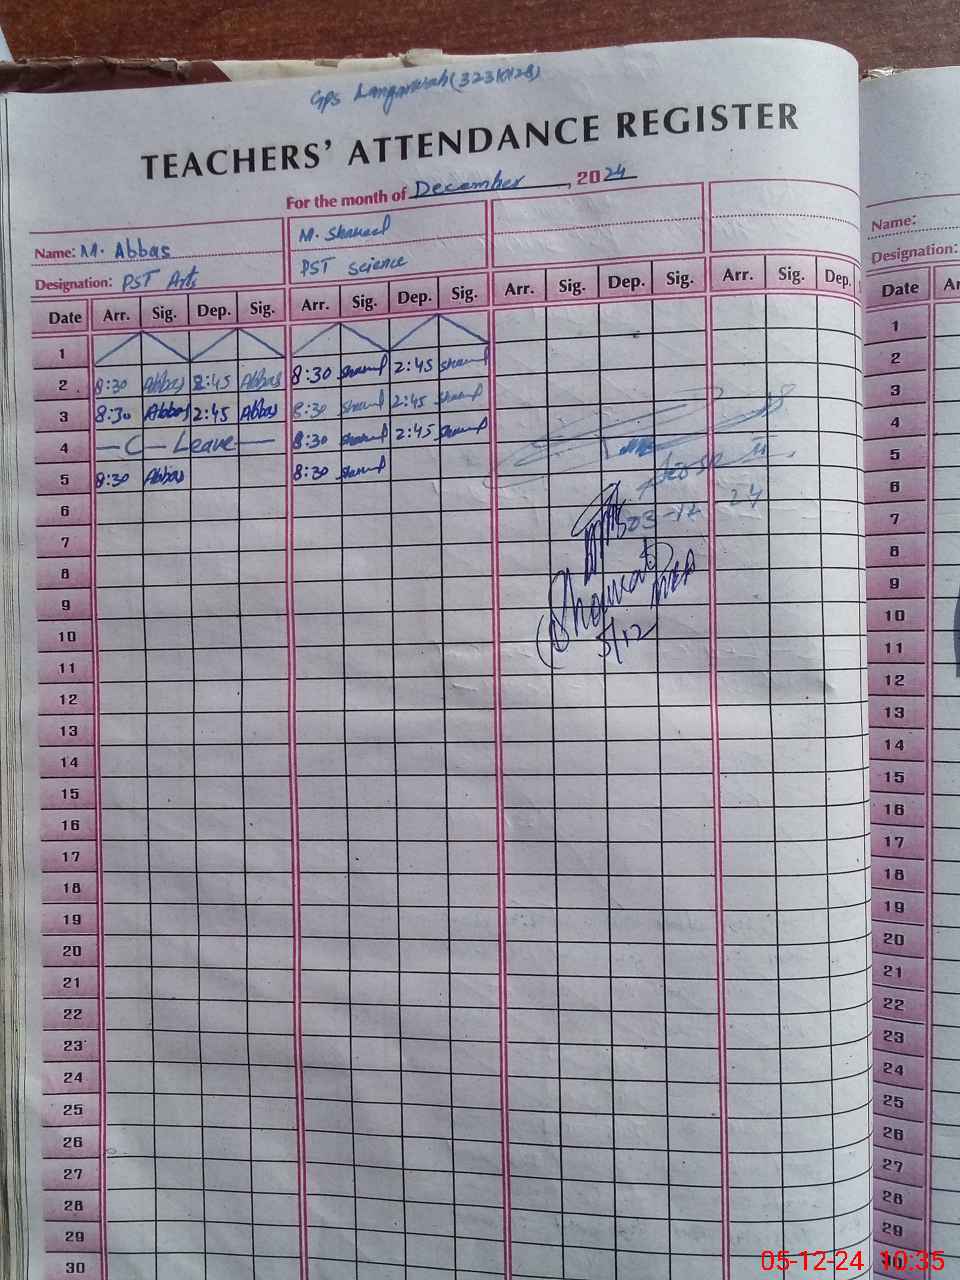 GPS Langanwah (32310128)
TEACHERS' ATTENDANCE REGISTER
For the month of December, 2024
Name: M. Abbas
M. Shakeel
Name:
Designation: PST Arts
PST Science
Designation:
Date Arr. Sig. Dep. Sig. Arr. Sig. Dep. Sig. Arr. Sig. Dep. Sig. Arr. Sig. Dep.
Date
1
2 8:30 Abbas 2:45 Abbas 8:30 2:45
3 8:30 Abbas 2:45 Abbas 8:30 2:45
4 -C-Leave- 8:30 2:45
5 8:30 Abbas 8:30
6
7
03-12 24
8
Shoukat MEA
9
10
5/12
11
12
13
14
15
16
17
18
19
20
21
22
23
24
25
26
27
28
29
30
1
2
3
4
5
6
7
8
9
10
11
12
13
14
15
16
17
18
19
20
21
22
23
24
25
26
27
28
29
05-12-24 10:35